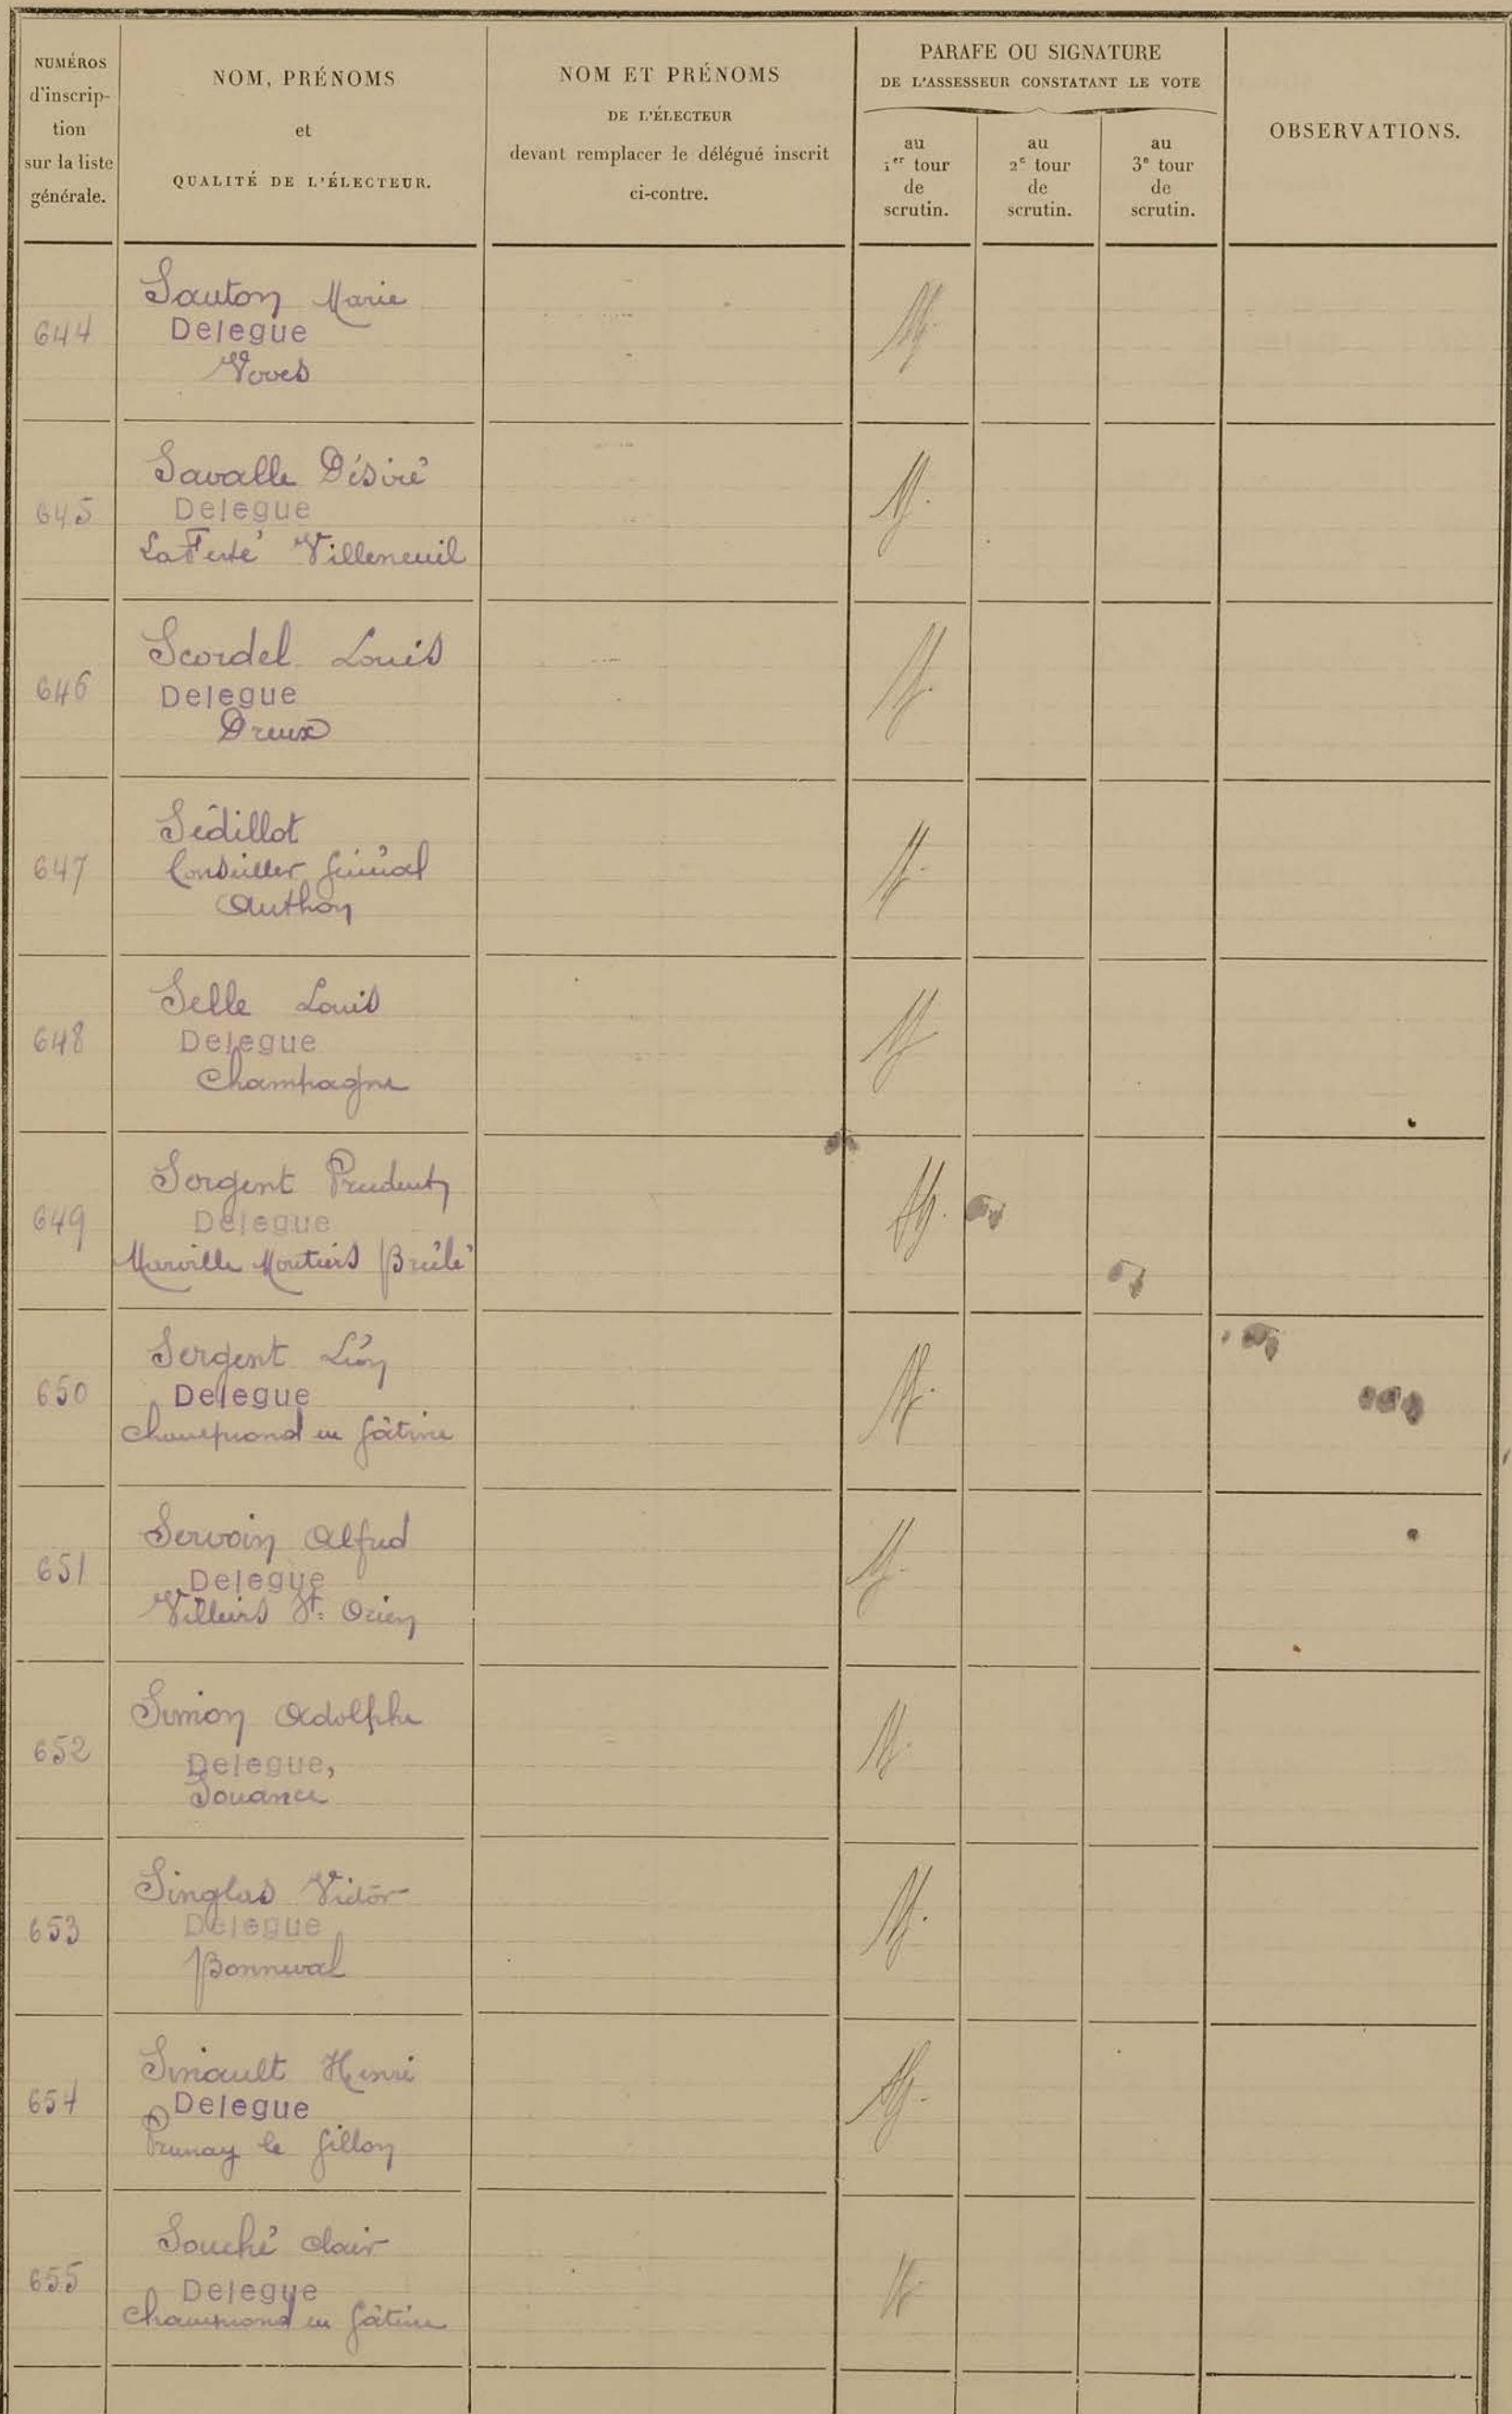 NUMÉROS
d'inscrip-
tion
sur la liste
générale.
NOM, PRÉNOMS
et
QUALITÉ DE L'ÉLECTEUR.
NOM ET PRÉNOMS
DE L'ÉLECTEUR
devant remplacer le délégué inscrit
ci-contre.
PARAFE OU SIGNATURE
DE L'ASSESSEUR CONSTATANT LE VOTE
au
1er tour
de
scrutin.
au
2e tour
de
scrutin.
au
3e tour
de
scrutin.
OBSERVATIONS.
644
Sauton Marie
Delegue
Voves
645
Savalle Désiré
Delegue
La Ferté Villeneuil
646
Scordel Louis
Delegue
Dreux
647
Sédillot
Conseiller général
Authon
648
Selle Louis
Delegue
Champagne
649
Sergent Prudent
Delegue
Marville Moutiers Brûlé
650
Sergent Léon
Delegue
Champrond en Gâtine
651
Servoin Alfred
Delegue
Villiers St. Orien
652
Simon Adolphe
Delegue,
Souancé
653
Singlas Victor
Delegue
Bonneval
654
Henri
Delegue
Prunay le Gillon
655
Souché Clair
Delegue
Champrond en Gâtine